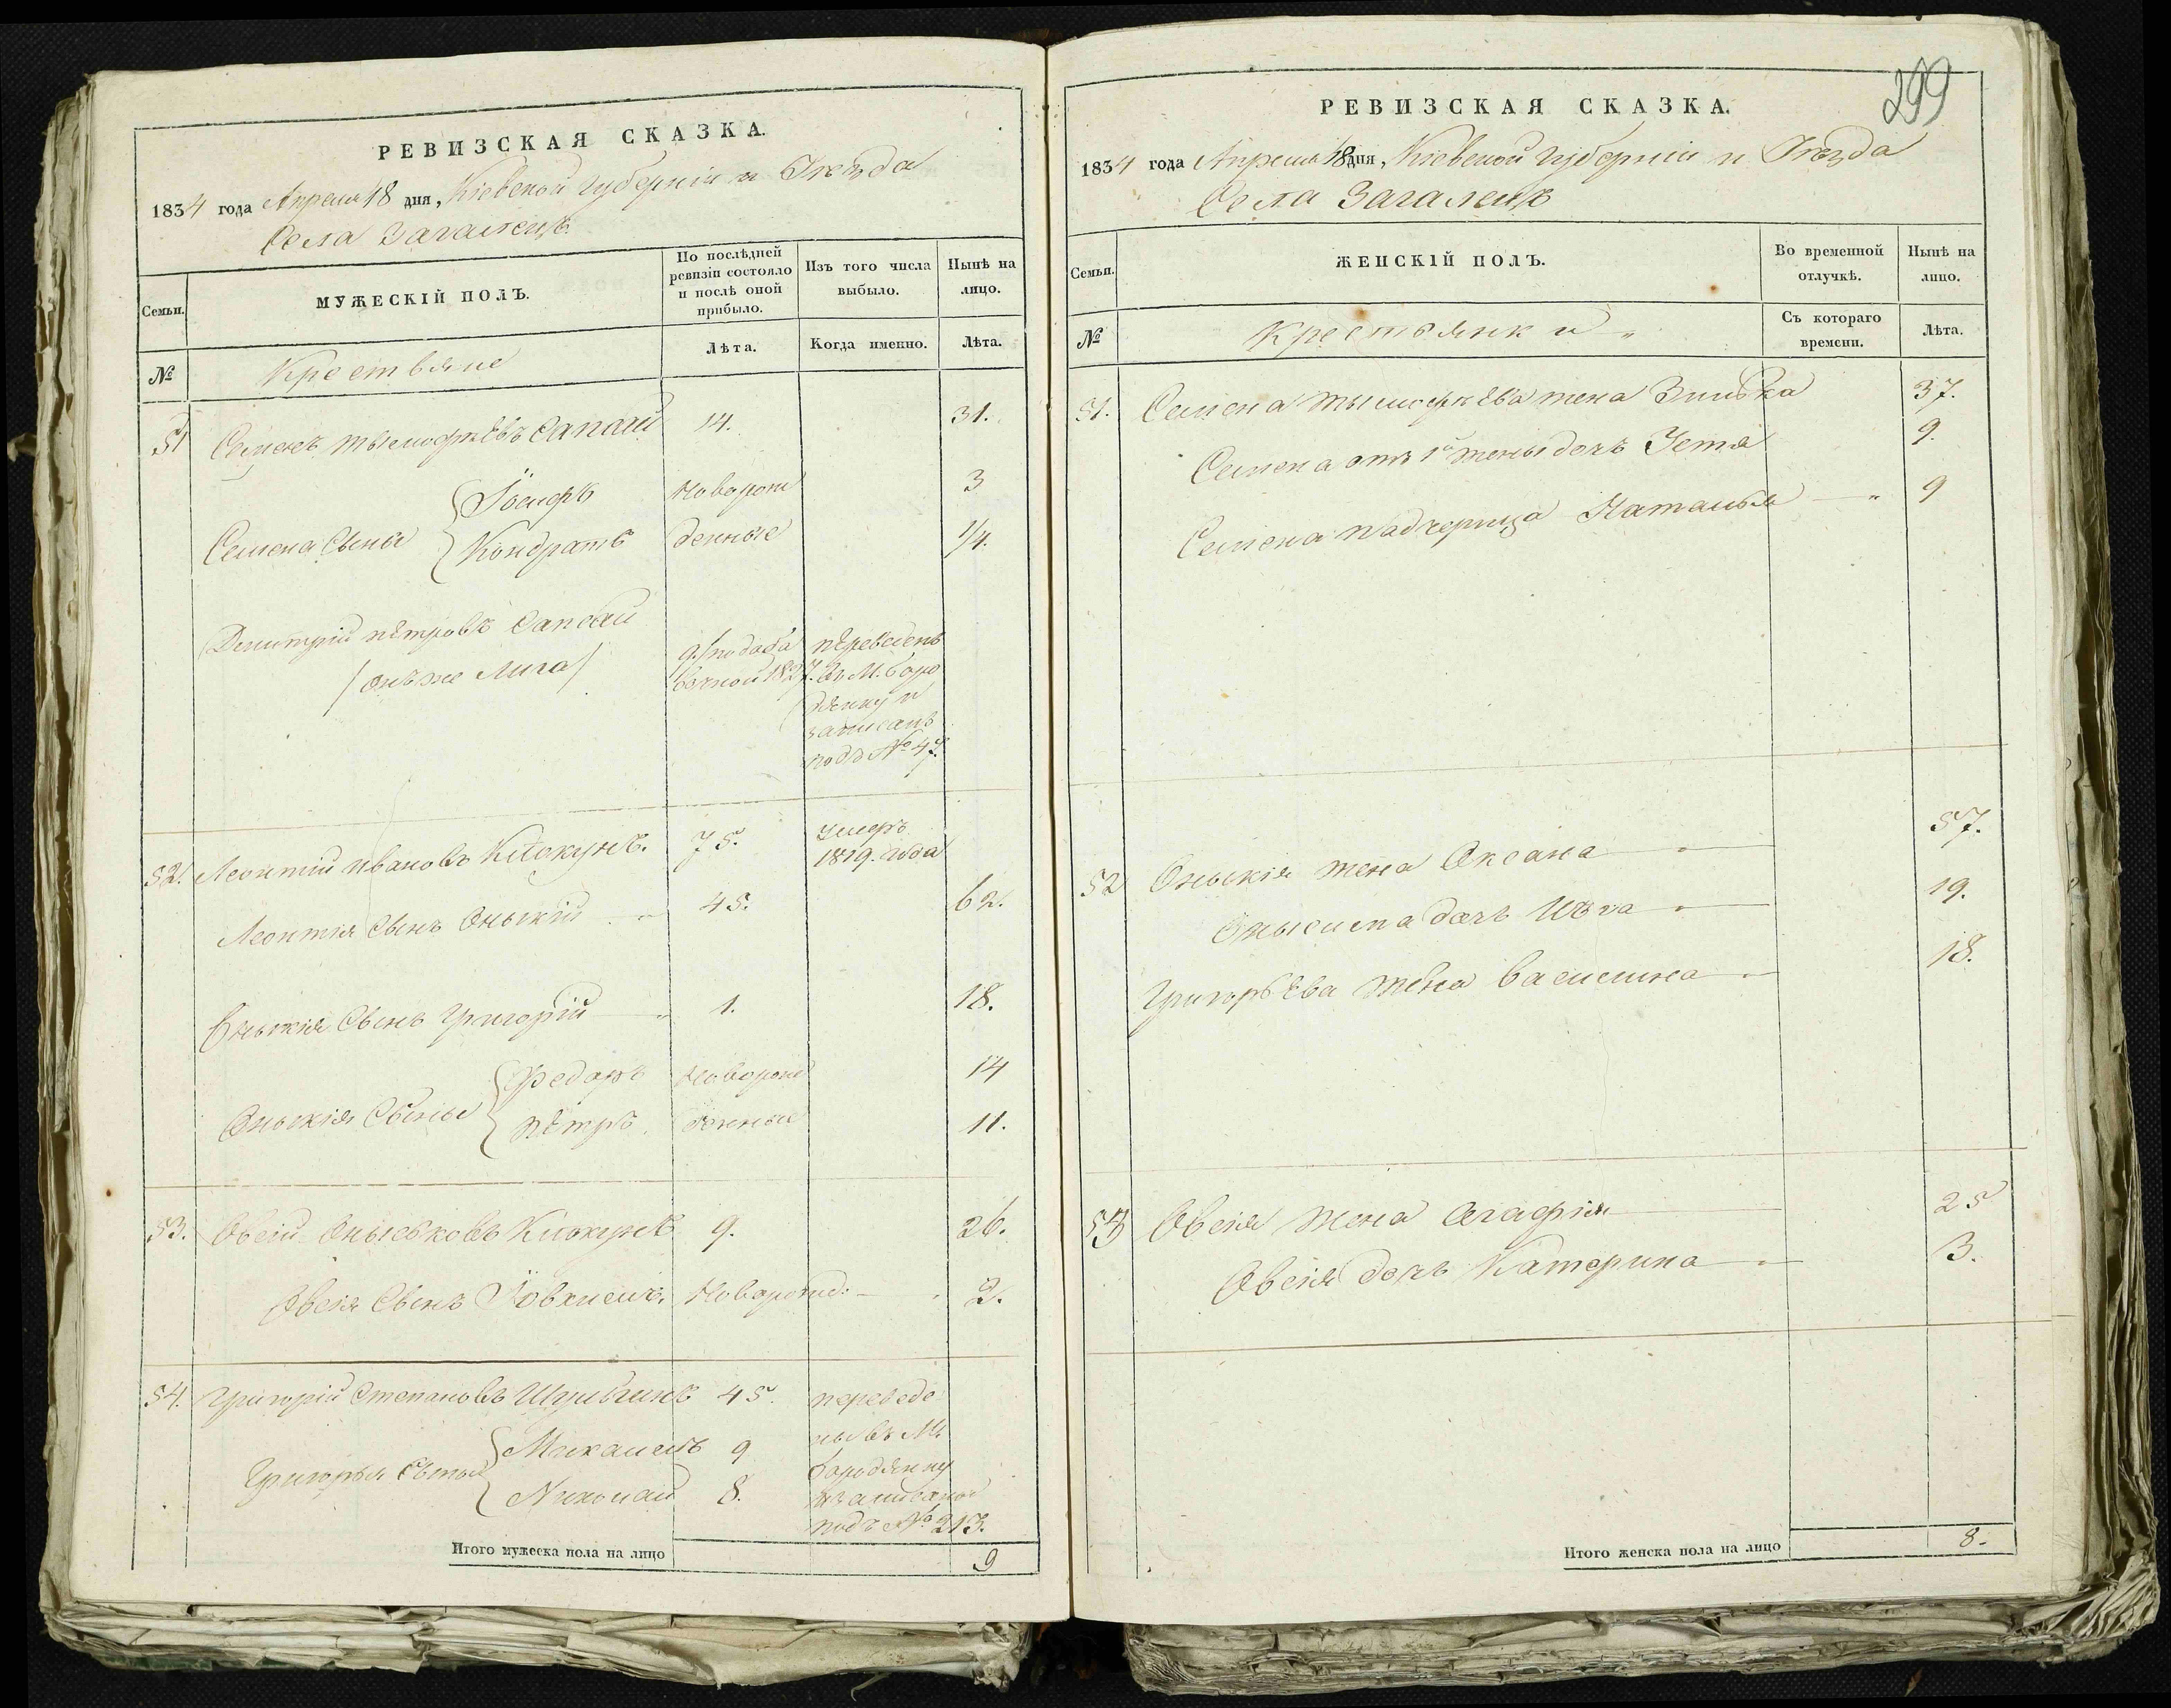 РЕВИЗСКАЯ СКАЗКА.
1834 года Апреля 18 дня, Кіевской губерніи и Уезда
Села Загалецъ
Семьи.
МУЖЕСКІЙ ПОЛЪ.
По послѣдней ревизіи состояло и послѣ оной прибыло.
Изъ того числа выбыло.
Нынѣ на лицо.
№
Крестьяне
Лѣта.
Когда именно.
Лѣта.
51 Семенъ Тымофѣевъ Сапай 14. 31.
Семена Сыны
Іосифъ Новорож 3
Кондратъ денные 1/4.
Дмитрій Петровъ Сапай 9. переведенъ
/онъ же Лига/ въ М. Боро
дянку и
записанъ
подъ № 47.
52. Леонтій Ивановъ 75. умеръ
1819. года
Леонтія Сынъ Оныскій 45. 62.
Оныскія Сынъ Григорій 1. 18.
Оныскія Сыны
Федоръ Новорож 14
Петръ денные 11.
53. Овсій Оныськовъ 9. 26.
Овсія Сынъ Новорожд: 2.
54. Григорій Степановъ 45. переведе
ны въ М.
Григорія Сыны
Михаилъ 9 Бородянку
Николай 8. и записаны
подъ № 213.
Итого мужеска пола на лицо 9
299
РЕВИЗСКАЯ СКАЗКА.
1834 года Апреля 18 дня, Кіевской губерніи и Уезда
Села Загалецъ
Семьи.
ЖЕНСКІЙ ПОЛЪ.
Во временной отлучкѣ.
Нынѣ на лицо.
№
Крестьянки
Съ котораго времени.
Лѣта.
51. Семена Тымофѣева жена Зинька 37.
Семена отъ 1й жены дочь Устя 9.
Семена падчерица Наталья 9
52 Оныскія жена Оксана 57.
дочь 19.
Григорьева жена Василина 18.
53 Овсія жена Агафія 25
Овсія дочь Катерина 3.
Итого женска пола на лицо 8.